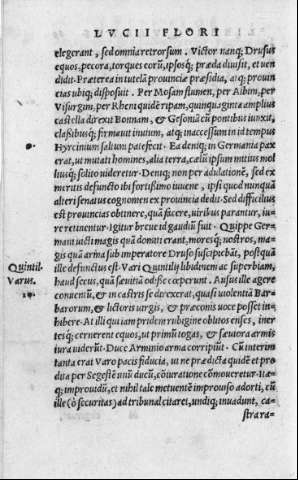 LVCII FLORI
elegerant, sed omnia retrorsum. Victor nanq; Drusus
equos, pecora, torques eorū, ipsosq; præda diuisit, et uen
didit. Præterea in tutelā prouinciæ præsidia, atq; prouin
cias ubiq; disposuit. Per Mosam flumen, per Albim, per
Visurgim, per Rheni quidē ripam, quinquaginta amplius
castella direxit Bonnam, & Gesoniā cū pontibus iunxit,
classibusq; firmauit inuium, atq; inaccessum in id tempus
Hyrcinum saltum patefecit. Ea deniq; in Germania pax
erat, ut mutati homines, alia terra, cælū ipsum mitius mol
liusq; solito uideretur. Deniq; non per adulationē, sed ex
meritis defuncto ibi fortissimo iuuene, ipsi quod nunquā
alteri senatus cognomen ex prouincia dedit. Sed difficilius
est prouincias obtinere, quā facere, uiribus parantur, iu-
re retinentur. Igitur breue id gaudiū fuit. Quippe Ger-
mani uicti magis quā domiti erant, moresq; nostros, ma-
gis quā arma sub imperatore Druso suspiciebāt, postquā
ille defunctus est. Vari Quintilij libidinem ac superbiam,
Quintil.
Varus.
haud secus, quā sæuitiā odisse cœperunt. Ausus ille agere
conuentū, & in castris se direxerat, quasi uiolentiā Bar-
barorum, & lictoris uirgis, & præconis uoce posset in-
hibere. At illi qui iam pridem rubigine oblitos enses, iner
tesq; cernerent equos, ut primū togas, & sæuiora armis
iura viderūt. Duce Arminio arma corripiūt. Cū interim
tanta erat Varo pacis fiducia, ut ne prædicta quidē et pro
dita per Segestē unū ducū, cōiuratione cōmoueretur. Ita-
q; improuidū, et nihil tale metuentē improuiso adorti, cū
ille (ô securitas) ad tribunal citaret, undiq; inuadunt, ca-
stra ra-